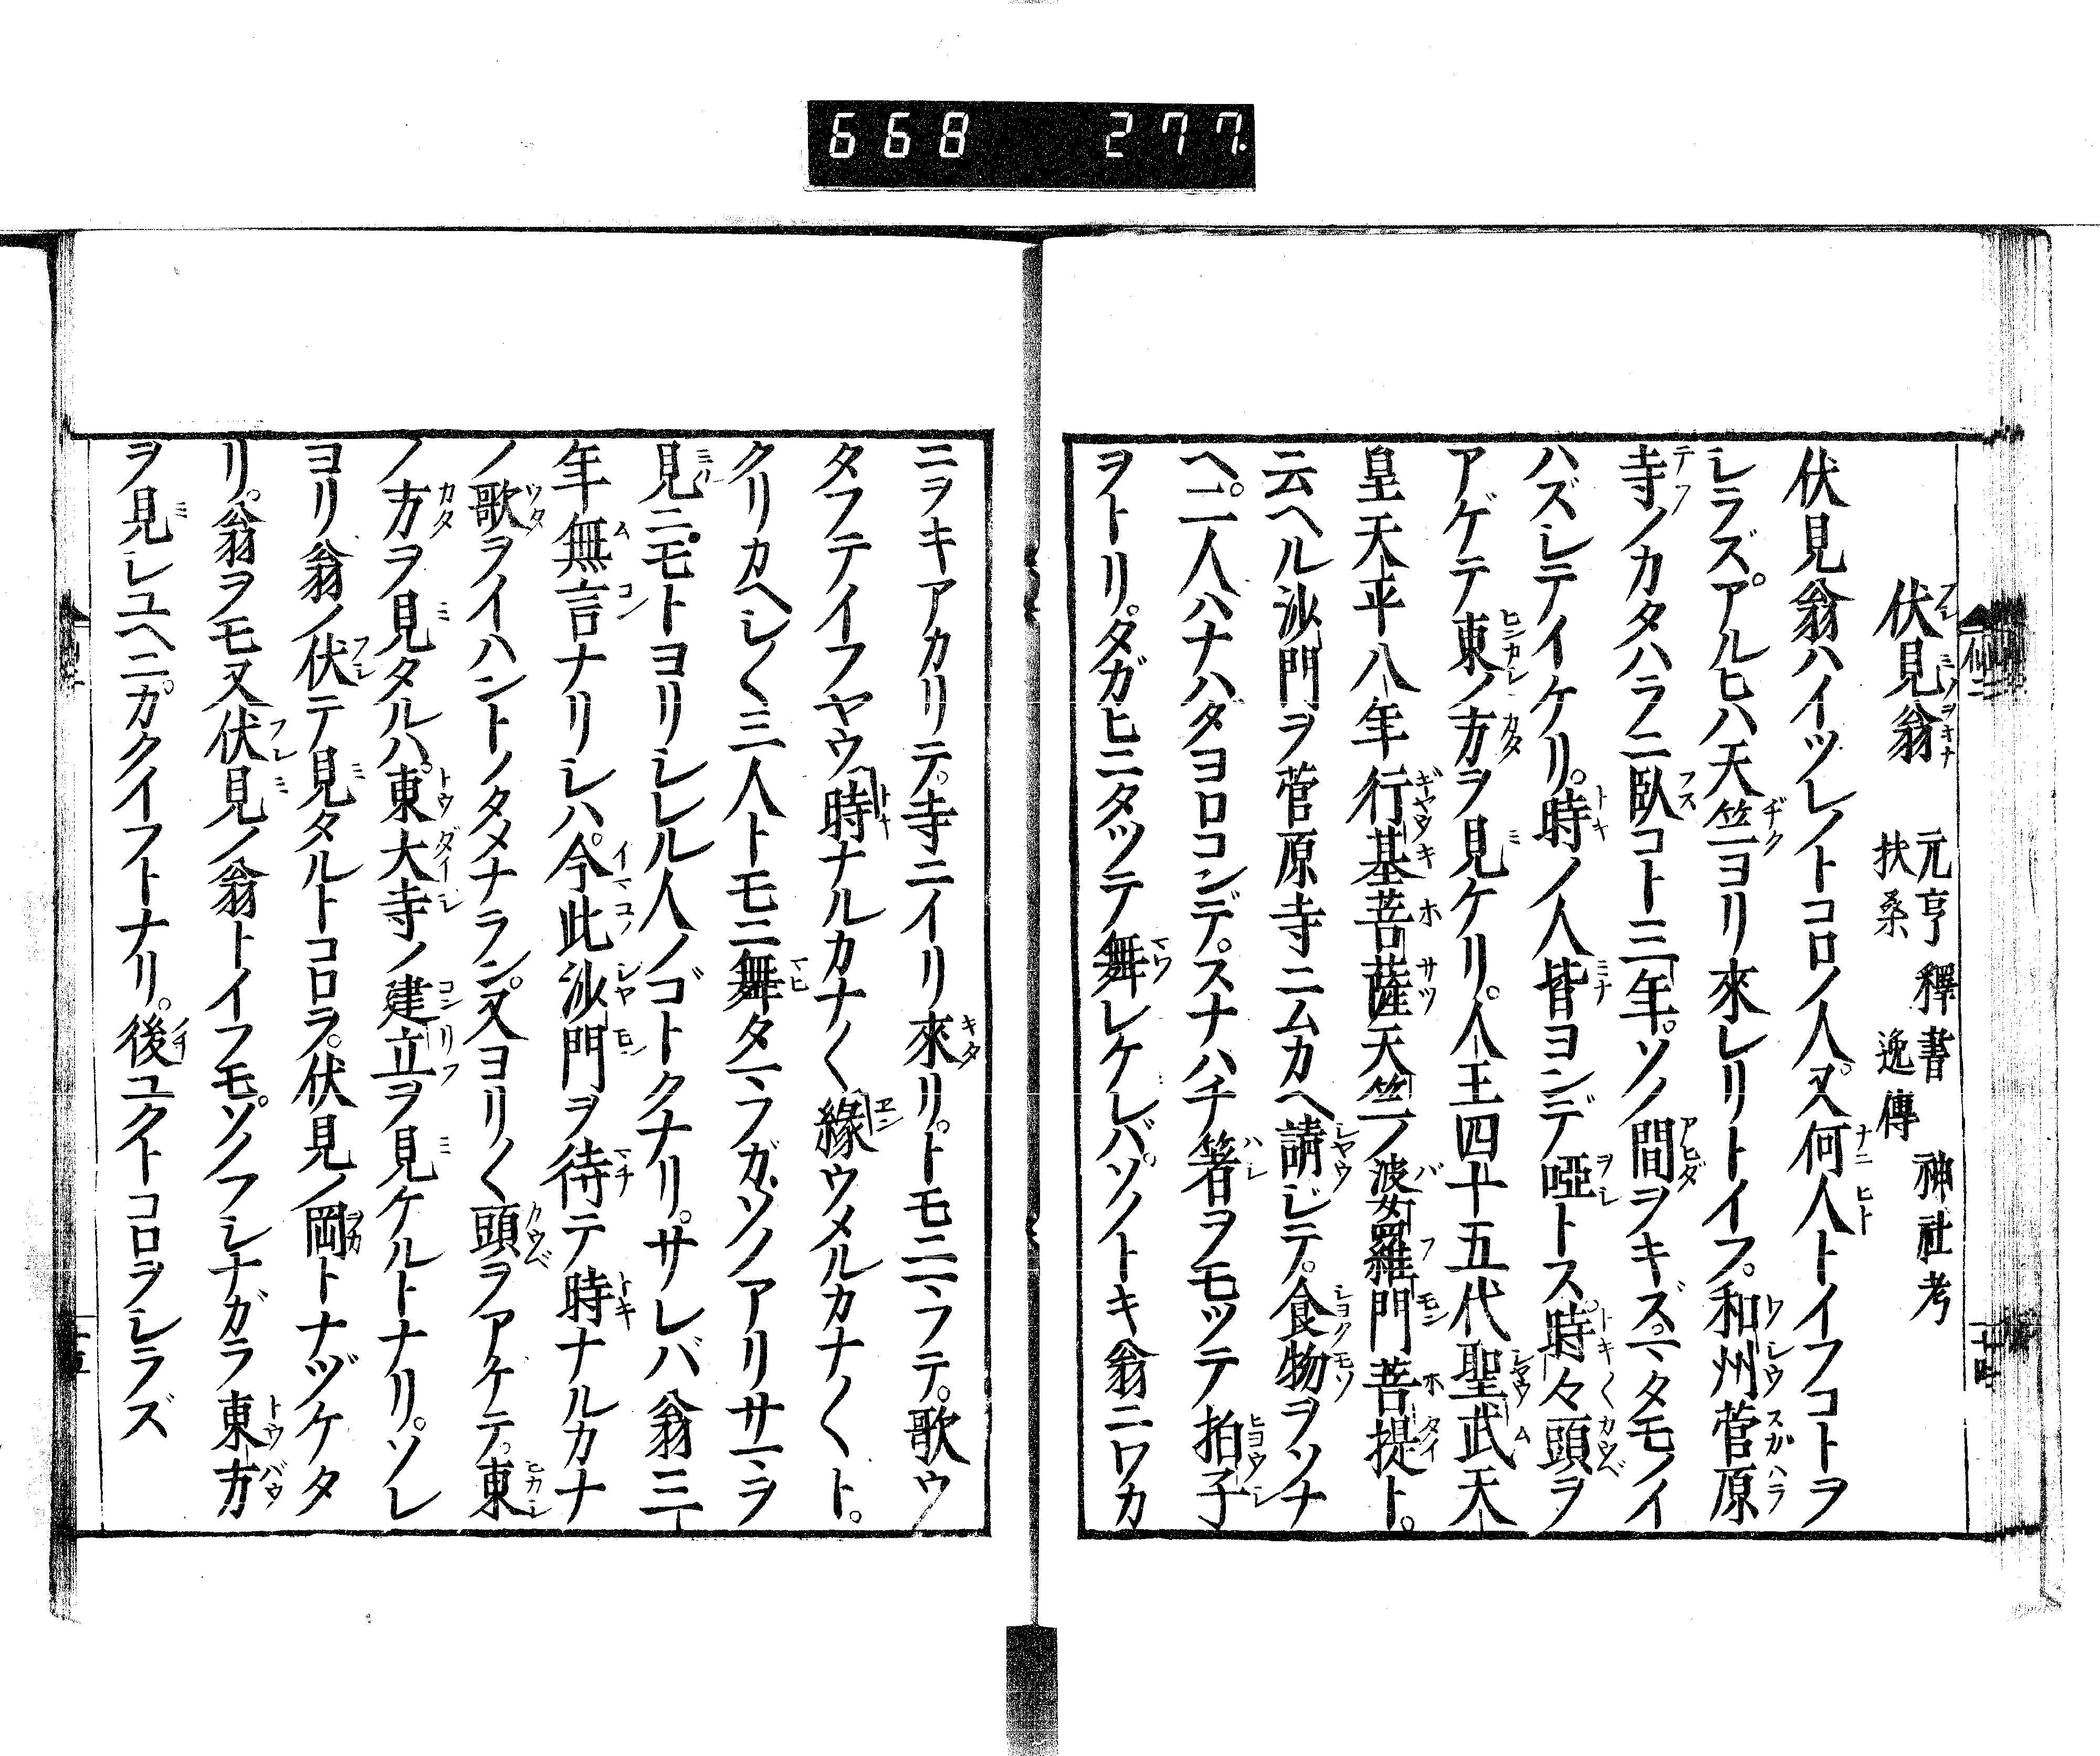 668 277
伏見翁 元亨釋書 神社考
扶桑逸傳
伏見翁ハイヅレノトコロノ人。又何人トイフコトヲ
シラズ。アルヒハ天竺ヨリ來レリトイフ。和州菅原
寺ノカタハラニ臥コト三年。ソノ間ヲキズ。マタモノイ
ハズシテイケリ。時ノ人皆ヨンデ啞トス。時々頭ヲ
アゲテ東ノ方ヲ見ケリ。人王四十五代聖武天
皇天平八年行基菩薩天竺ノ婆羅門菩提ト。
云ヘル沙門ヲ菅原寺ニムカヘ請ジテ。食物ヲソナ
ヘ。二人ハナハダヨロコンデ。スナハチ箸ヲモツテ拍子
ヲトリ。タガヒニタツテ舞シケレバ。ソノトキ翁ニワカ
ニヲキアカリテ。寺ニイリ來リ。トモニマフテ。歌ウ
タフテイフヤウ時ナルカナ〱緣ウメルカナ〱ト。
クリカヘシ〱三人トモニ舞タマフガ。ソノアリサマヲ
見ニ。モトヨリシレル人ノゴトクナリ。サレバ翁三
年無言ナリシハ。今此沙門ヲ待テ時ナルカナ
ノ歌ヲイハントノタメナラン。又ヨリ〱頭ヲアゲテ。東
ノ方ヲ見タルハ。東大寺ノ建立ヲ見ケルトナリ。ソレ
ヨリ翁ノ伏テ見タルトコロヲ。伏見ノ岡トナヅケタ
リ。翁ヲモ又伏見ノ翁トイフモ。ソノフシナガラ東方
ヲ見シユヘニ。カクイフトナリ。後ユクトコロヲシラズ